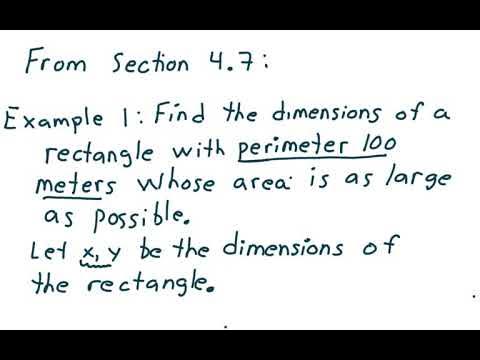 From Section 4.7:
Example 1: Find the dimensions of a
rectangle with perimeter 100
meters whose area is as large
as possible.
Let x, y be the dimensions of
the rectangle.